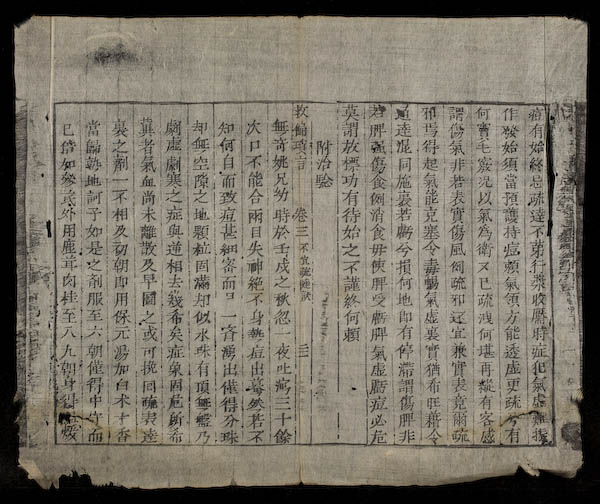 痘有始終忌疏達不第行漿收靨時症犯氣虛難挨
作發始須當預護持痘賴氣領方能透虛更疏兮有
何實毛竅況以氣為衛又已疏洩何堪再縱有客感
謂傷氣非若表實傷風例疏邪迂宜兼實表竟爾疏
得起氣能克塞令毒暢氣虛裏實猶布旺藉令
通達混同施裏若虧兮損何地即有停滯謂傷脾非
若脾強傷食例消食毋使脾受虧脾氣虛虧痘必危
莫謂放標功有待始之不謹終何賴
附治驗
救偏瑣言 卷三 不宜疏達訣 三
無奇姚兄幼時於壬戌之秋忽一夜吐瀉三十餘
次口不能合兩目失神絕不身熱痘出驀然若不
知何自而致痘甚細密而口一齊湧出僅得分珠
却無空隙之地顆粒固滿却似水珠有頂無盤乃
劇虛劇寒之症與逆相去幾希矣症象固危所希
冀者氣血尚未離散及早圖之或可挽回疏表達
裏之劑一不相及初朝即用保元湯加白朮丁香
當歸熟地訶子如是之劑服至六朝僅得中守而
已倍如參芪外用鹿茸肉桂至八九朝身得煖